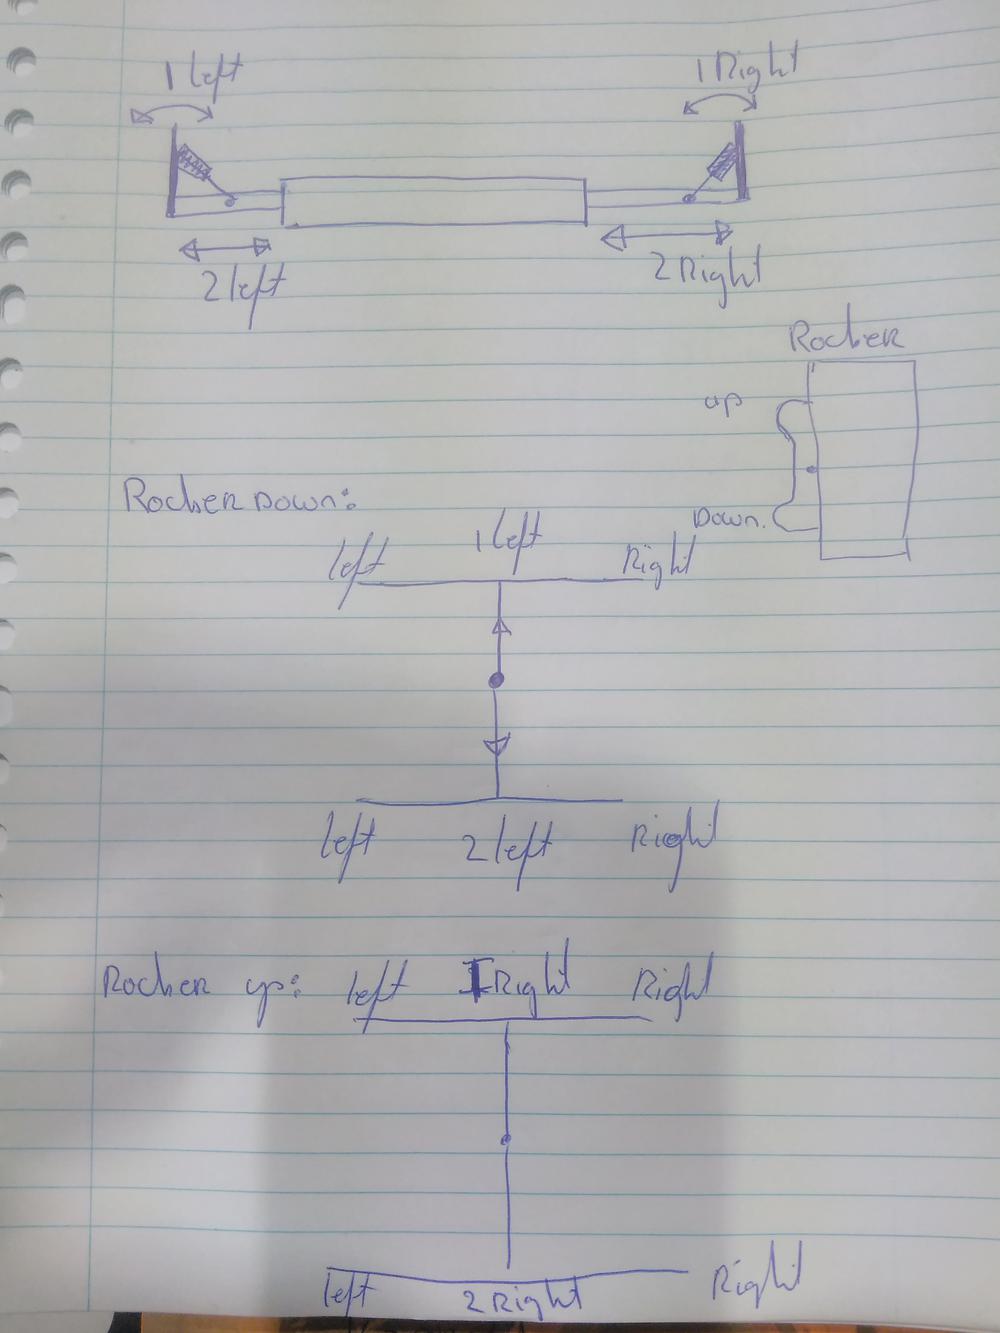 1 left
1 Right
2 left
2 Right
Rocker
up
Down.
Rocker Down:
left 1 left Right
left 2 left Right
Rocker up: left 1 Right Right
left 2 Right Right